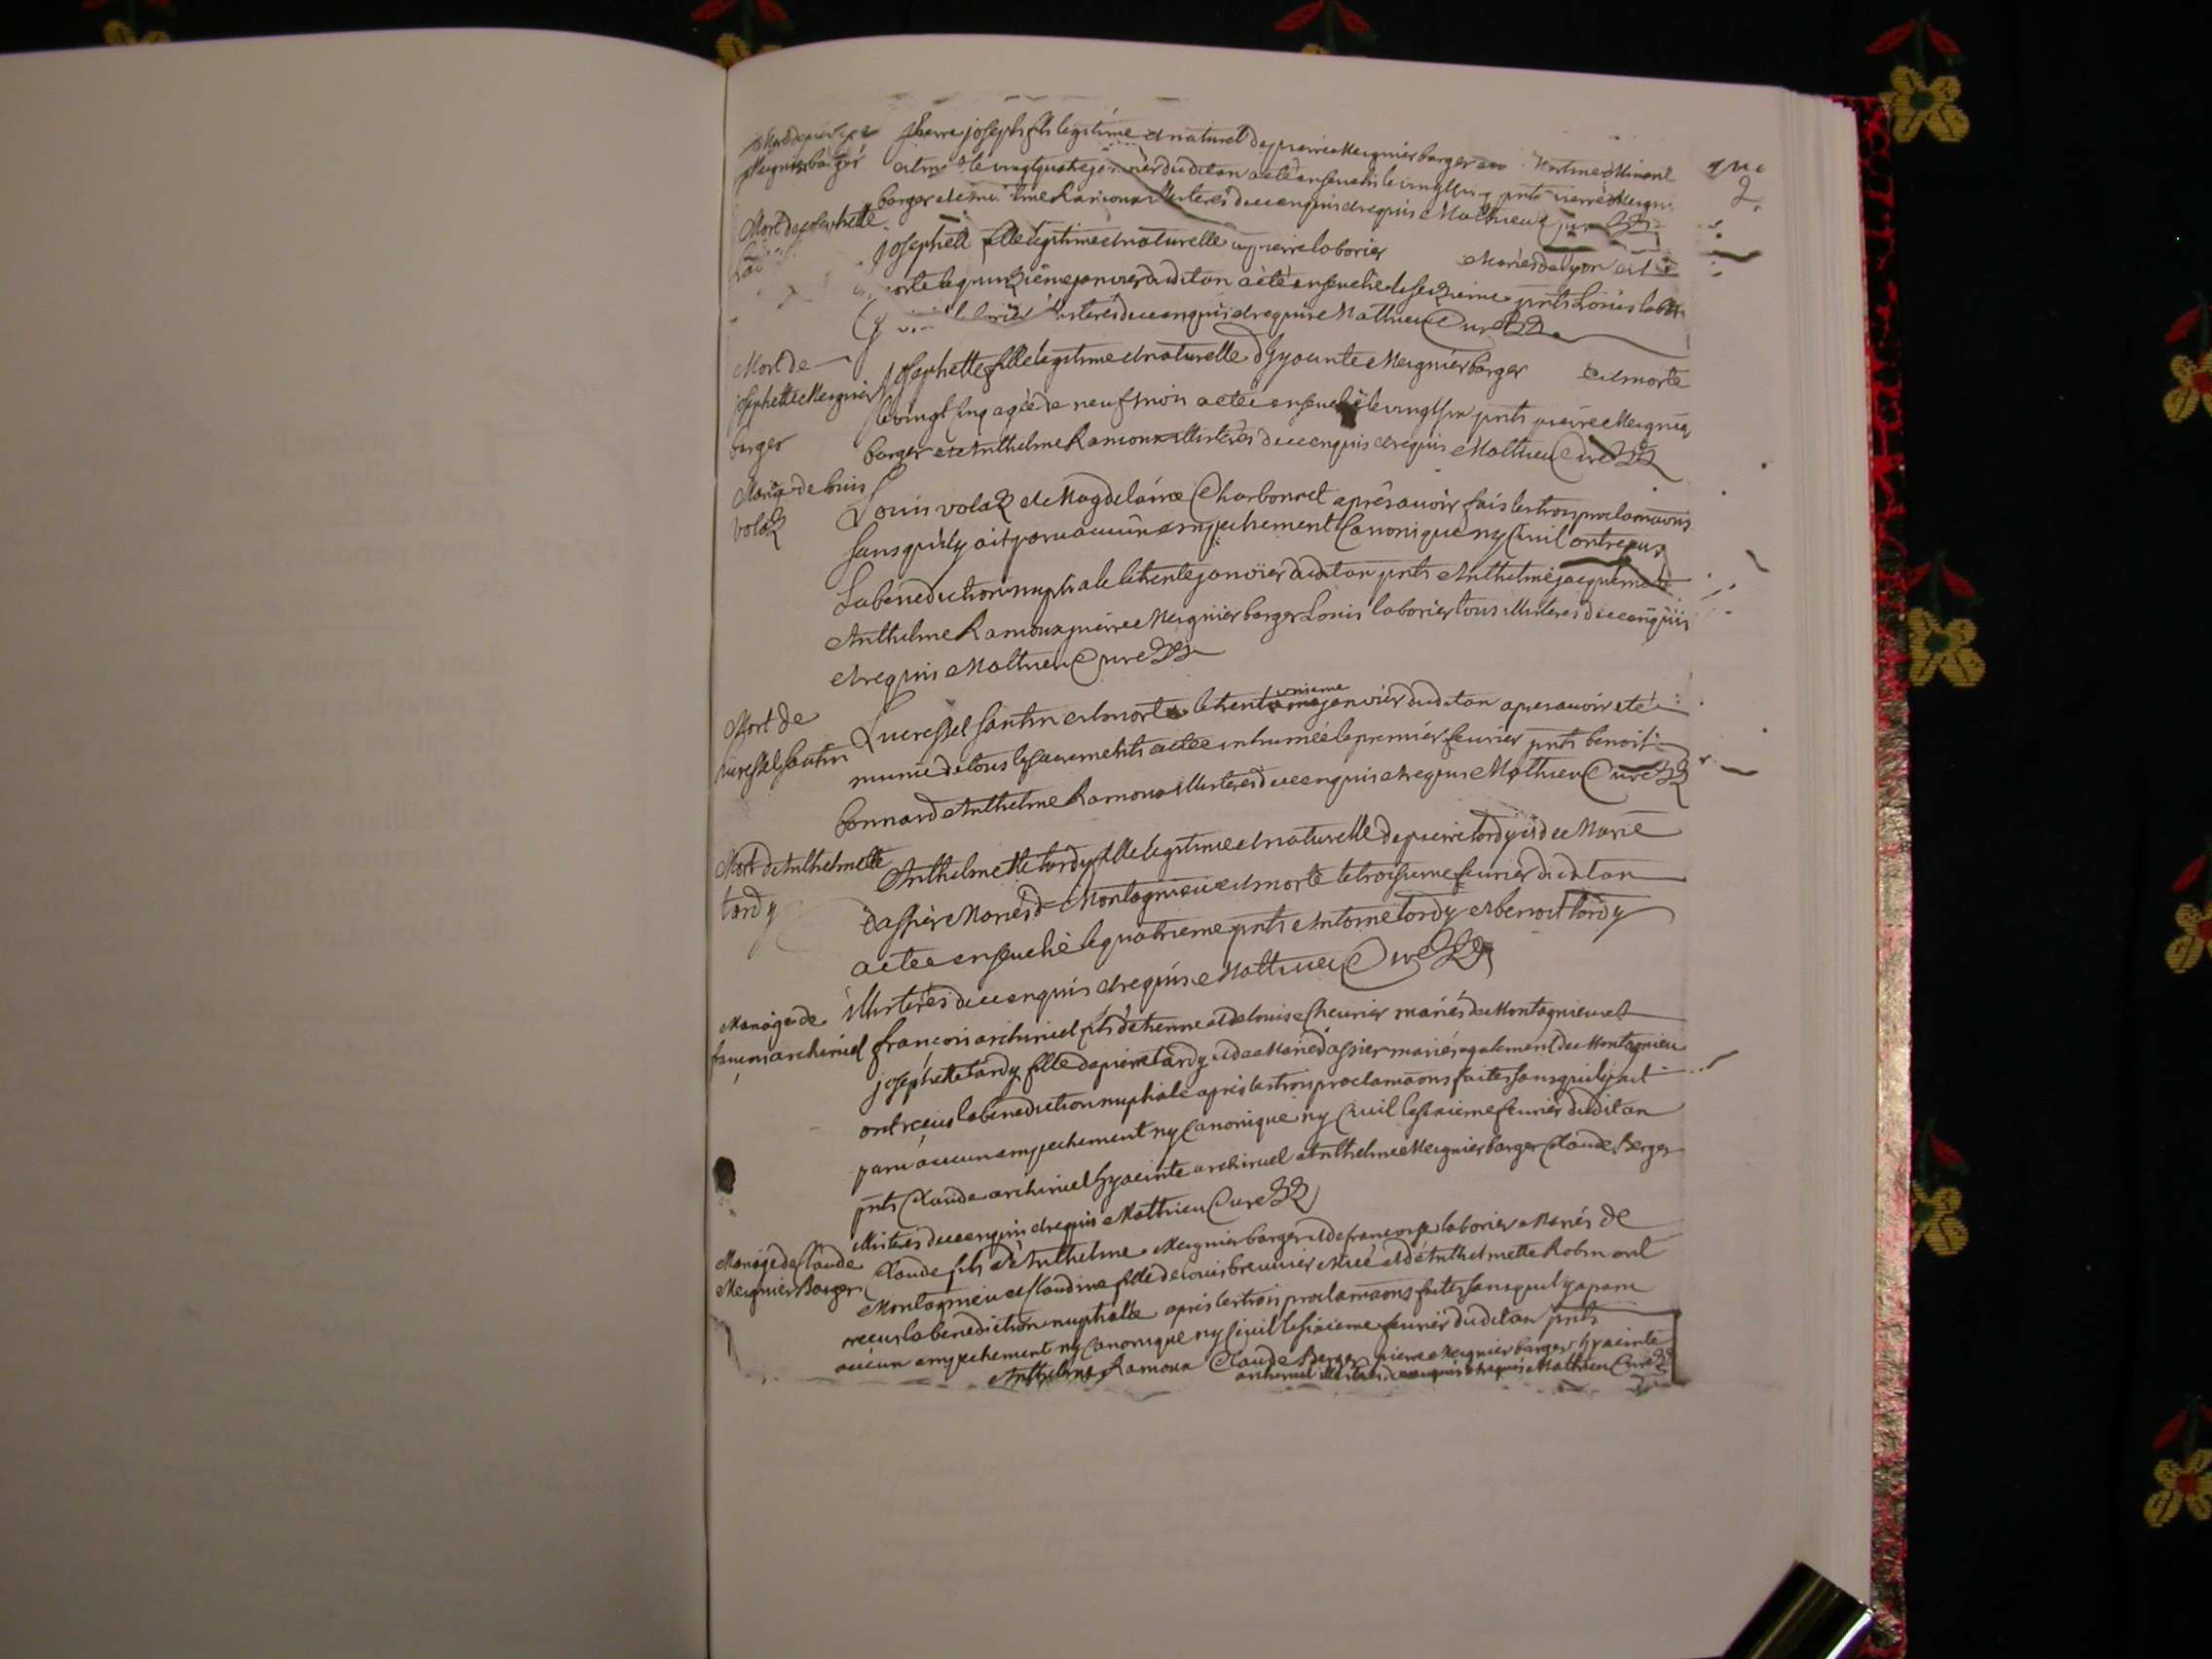 Mort de pierre
Meignier barger
pierre joseph fils legitime et naturel de pierre Meignier barger
est mort le vingt quatre janvier dudit an a eté enseveli le vingt cinq pnts pierre Meignier
barger et Anthelme Ramoux illiteres de ce enquis et requis Mathieu Curé
Mort de josephette
josephette fille legitime et naturelle de pierre laborier Mariés de lyon est
morte le quinzieme janvier dudit an a eté ensevelie le sezieme pnts Louis labor
illiteres de ce enquis et requis Mathieu Curé
Mort de
josephette Meignier
barger
josephette fille legitime et naturelle d'hyacinte Meignier barger est morte
le vingt cinq agée de neuf mois a eté ensevelie le vingt six pnts pierre Meignier
barger et Anthelme Ramoux illiteres de ce enquis et requis Mathieu Curé
Mariage de Louis
volaz
Louis volaz et Magdelaine Charbonnet aprés avoir fais les trois proclamaons
sans qu'il y ait paru aucun empechement Canonique ny Civil ont reçeus
La benediction nuptiale le trente janvier dudit an pnts Anthelme jacquemet
Anthelme Ramoux pierre Meignier barger Louis laborier tous illiteres de ce enquis
et requis Mathieu Curé
Mort de
Lucresse Santin
Lucresse Santin est morte le trente unieme janvier dudit an apres avoir eté
munie de tous les sacrements a eté inhumée le premier fevrier pnts benoit
bonnard Anthelme Ramoux illiteres de ce enquis et requis Mathieu Curé
Mort d'Anthelmette
tardy
Anthelmette tardy fille legitime et naturelle de pierre tardy et de Marie
dassier Mariés de Montagnieu est morte le troisieme fevrier dudit an
a eté ensevelie le quatrieme pnts Antoine tardy et benoit tardy
illiteres de ce enquis et requis Mathieu Curé
Mariage de
françois archirel
françois archirel fils d'etienne et de louise Chevrier mariés de Montagnieu et
josephette tardy fille de pierre tardy et de Marie dassier mariés egalement de Montagnieu
ont reçeus la benediction nuptiale aprés les trois proclamaons faites sans qu'il y ait
paru aucun empechement ny Canonique ny Civil le sixieme fevrier dudit an
pnts Claude archirel hyacinte archirel Anthelme Meignier barger Claude Berger
illiteres de ce enquis et requis Mathieu Curé
Mariage de Claude
Meignier Barger
Claude fils d'Anthelme Meignier barger et de françoise laborier Mariés de
Montagnieu et Claudine fille de louis breuvier et d'Anthelmette Robin ont
reçeus la benediction nuptialle aprés les trois proclamaons faites sans qu'il y a paru
aucun empechement ny Canonique ny Civil le sixieme fevrier dudit an pnts
Anthelme Ramoux Claude Berger pierre Meignier barger hyacinte
archirel illiteres de ce enquis et requis Mathieu Curé